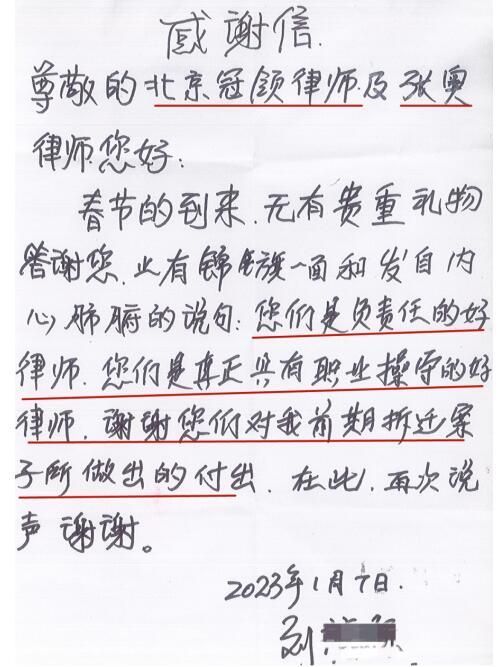 感谢信.
尊敬的北京冠领律师及张奥
律师您好:
春节的到来.无有贵重礼物
答谢您.止有锦旗一面和发自内
心肺腑的说句:您们是负责任的好
律师.您们是真正具有职业操守的好
律师.谢谢您们对我前期拆迁案
子所做出的付出.在此.再次说
声谢谢。
2023年1月7日.
刘